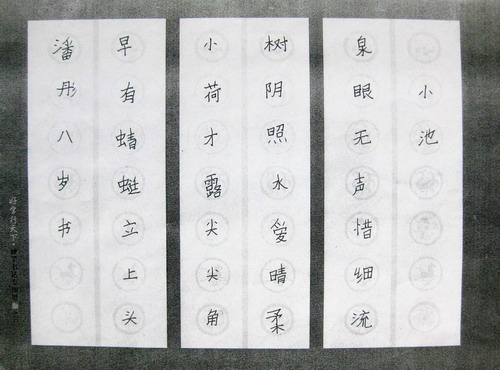 小池
泉眼无声惜细流
树阴照水爱晴柔
小荷才露尖尖角
早有蜻蜓立上头
潘彤八岁书